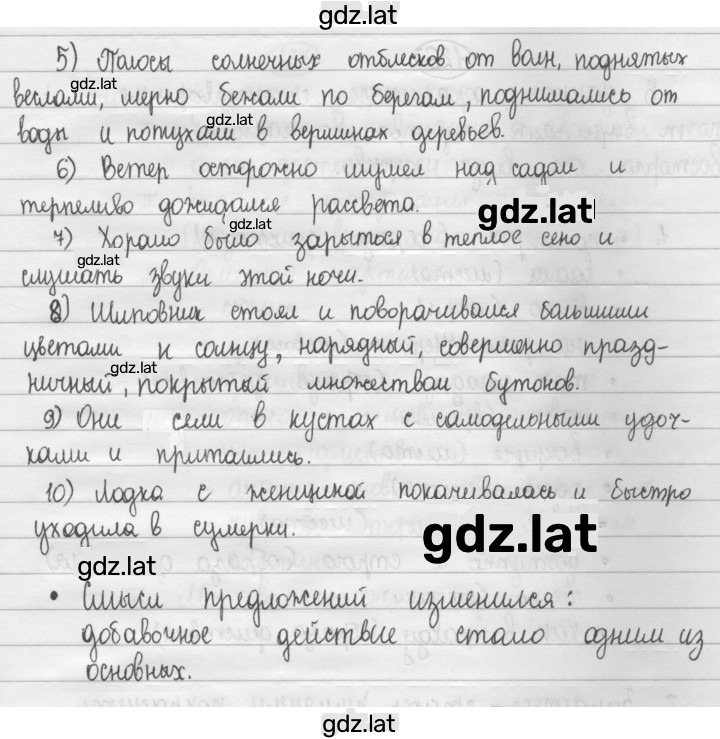 gdz.lat
5) Полосы солнечных отблесков от волн, поднятых
gdz.lat
веслами, мерно бежали по берегам, поднимались от
gdz.lat
воды и потухали в вершинах деревьев.
6) Ветер осторожно шумел над садом и
терпеливо дожидался рассвета. gdz.lat
gdz.lat
7) Хорошо было зарыться в теплое сено и
gdz.lat
слушать звуки этой ночи.
8) Шиповник стоял и поворачивался большими
цветами к солнцу, нарядный, совершенно празд-
gdz.lat
ничный, покрытый множеством бутонов.
9) Они сели в кустах с самодельными удоч-
ками и притаились.
gdz.lat
10) Лодка с женщиной покачивалась и быстро
уходила в сумерки. gdz.lat
gdz.lat
• Смысл предложений изменился:
добавочное действие стало одним из
основных.
gdz.lat